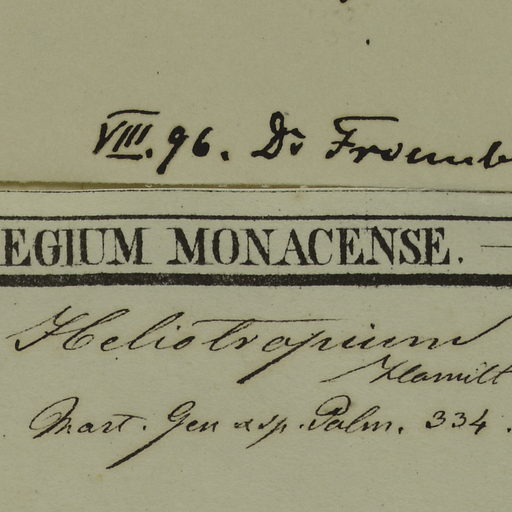 VIII. 96. Dr Fromb
EGIUM MONACENSE.
Heliotropium
Hamilt
Mart. Gen & sp. Palm. 334.